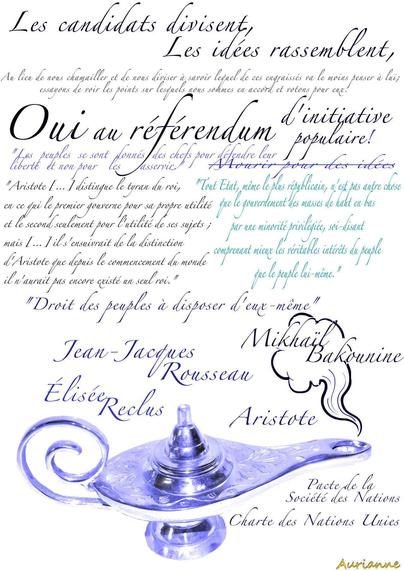 Les candidats divisent,
Les idées rassemblent,
Au lieu de nous chamailler et de nous diviser à savoir lequel de ces engraissés va le moins penser à lui;
essayons de voir les points sur lesquels nous sommes en accord et votons pour eux!
Oui au référendum d'initiative
populaire!
"Les peuples se sont donnés des chefs pour défendre leur
liberté et non pour les asservir."
Mourir pour des idées
"Aristote [...] distingue le tyran du roi,
en ce qui le premier gouverne pour sa propre utilité
et le second seulement pour l'utilité de ses sujets ;
mais [...] il s'ensuivrait de la distinction
d'Aristote que depuis le commencement du monde
il n'aurait pas encore existé un seul roi."
"Tout Etat, même le plus républicain, n'est pas autre chose
que le gouvernement des masses de haut en bas
par une minorité privilégiée, soi-disant
comprenant mieux les véritables intérêts du peuple
que le peuple lui-même."
"Droit des peuples à disposer d'eux-même"
Mikhaïl
Bakounine
Jean-Jacques
Rousseau
Élisée
Reclus
Aristote
Pacte de la
Société des Nations
Charte des Nations Unies
Aurianne